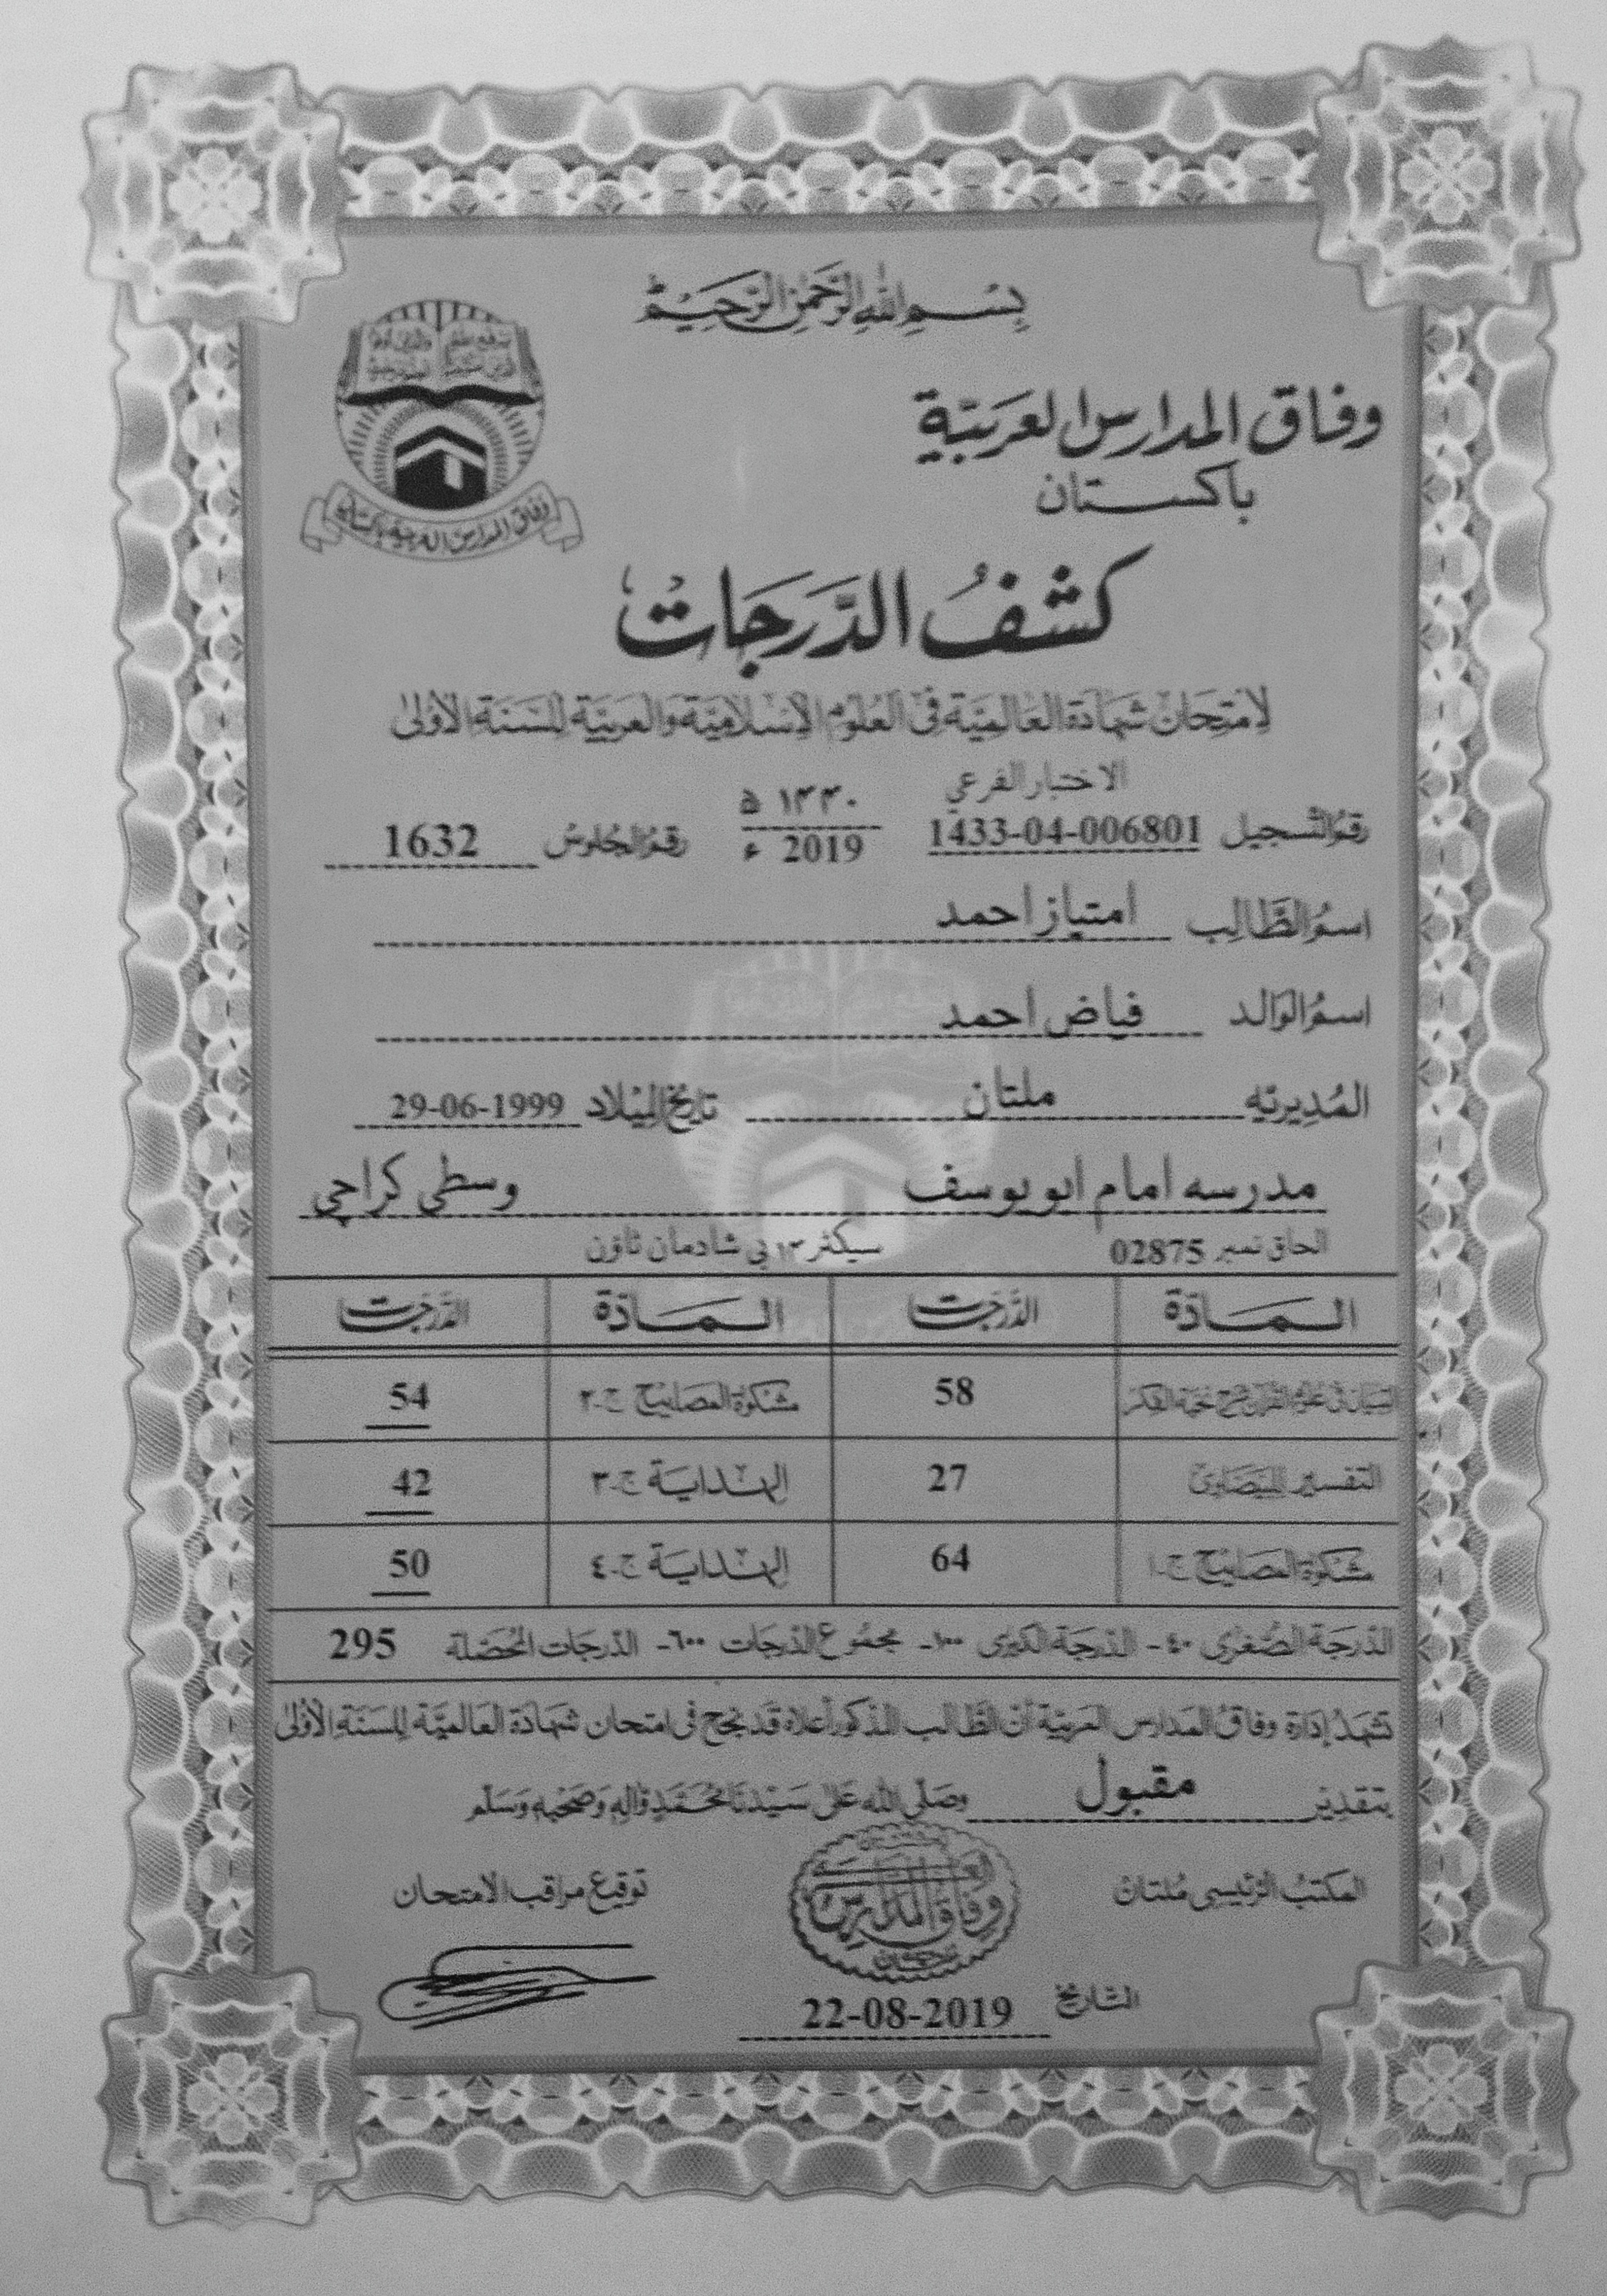 بِسْمِ اللهِ الرَّحْمٰنِ الرَّحِيْمِ
وفاق المدارس العربية
باكستان
وفاق المدارس العربية باكستان
كشفُ الدَّرَجَات
لِامتِحَانْ شَهَادَة العَالِمِيَّة فِى العُلُوْم الْاِسْلَامِيَّة وَالعَرَبِيَّة لِلسَّنَةِ الْاُوْلىٰ
الاختبار الفرعي
رقمُ التَّسجيل 1433-04-006801 ١٤٤٠ ه 2019 ء رقمُ الجُلوسُ 1632
اسمُ الطَّالِب امتیاز احمد
اسمُ الوَالد فیاض احمد
المُدِيريَّه ملتان تاريخُ المِيْلاد 29-06-1999
مدرسه امام ابو یوسف وسطی کراچی
الحاق نمبر 02875 سیکٹر ۱۳ بی شادمان ٹاؤن
المَادّة الدَّرَجٰت المَادّة الدَّرَجٰت
58 مشكوٰة المصابيح ج-٢ 54
التفسير للبيضاوىّ 27 الهِـدايَـة ج-٣ 42
مشكوٰة المصابيح ج-١ 64 الهِـدايَـة ج-٤ 50
الدّرجَة الصُّغرٰى ٤٠- الدّرجَة الكبرٰى ١٠٠- مجمُوع الدّرجَات ٦٠٠- الدّرجَات المُحَصَّلة 295
تشهَدُ إدَارة وفَاقُ المَدارس العَربيّة أنّ الطّالب المذكور أعلاه قَد نجح فى امتحان شهَادَة العَالميَّة لِلسَنَةِ الْاُوْلىٰ
بتقدير مقبول وصَلّى الله عَلىٰ سَيّدنَا مُحَمَّدٍ وَّاٰلِهٖ وَصَحْبِهٖ وَسَلّم
المكتبُ الرّئيسى مُلتان توقيع مراقب الامتحان
وفاق المدارس
التّاريخ 22-08-2019